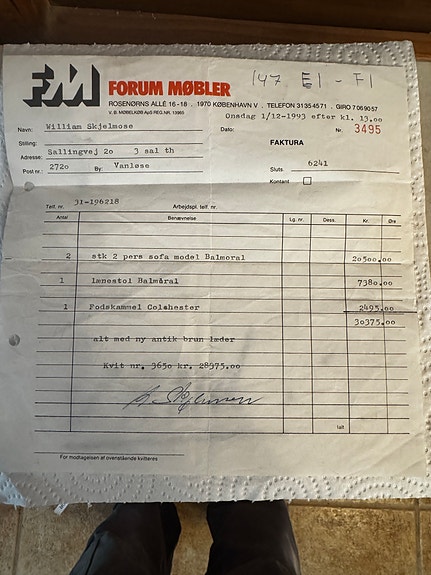 FM FORUM MØBLER
147 E1 - F1
ROSENØRNS ALLÉ 16-18 . 1970 KØBENHAVN V . TELEFON 31354571 . GIRO 7069057
V. B. MØBELKØB ApS REG.NR. 13965
Onsdag 1/12-1993 efter kl. 13.00
Navn: William Skjelmose Dato: Nr. 3495
Stilling: FAKTURA
Adresse: Sallingvej 20 3 sal th
Post nr.: 2720 By: Vanløse Sluts. 6241
Kontant
Telf. nr. 31-196218 Arbejdspl. telf. nr.
Antal Benævnelse Lg. nr. Dess. Kr. Øre
2 stk 2 pers sofa model Balmoral 20500.00
1 lænestol Balmoral 7380.00
1 Fodskammel Colchester 2495.00
30375.00
alt med ny antik brun læder
Kvit nr. 3650 kr. 28375.00
Ialt
For modtagelsen af ovenstående kvitteres